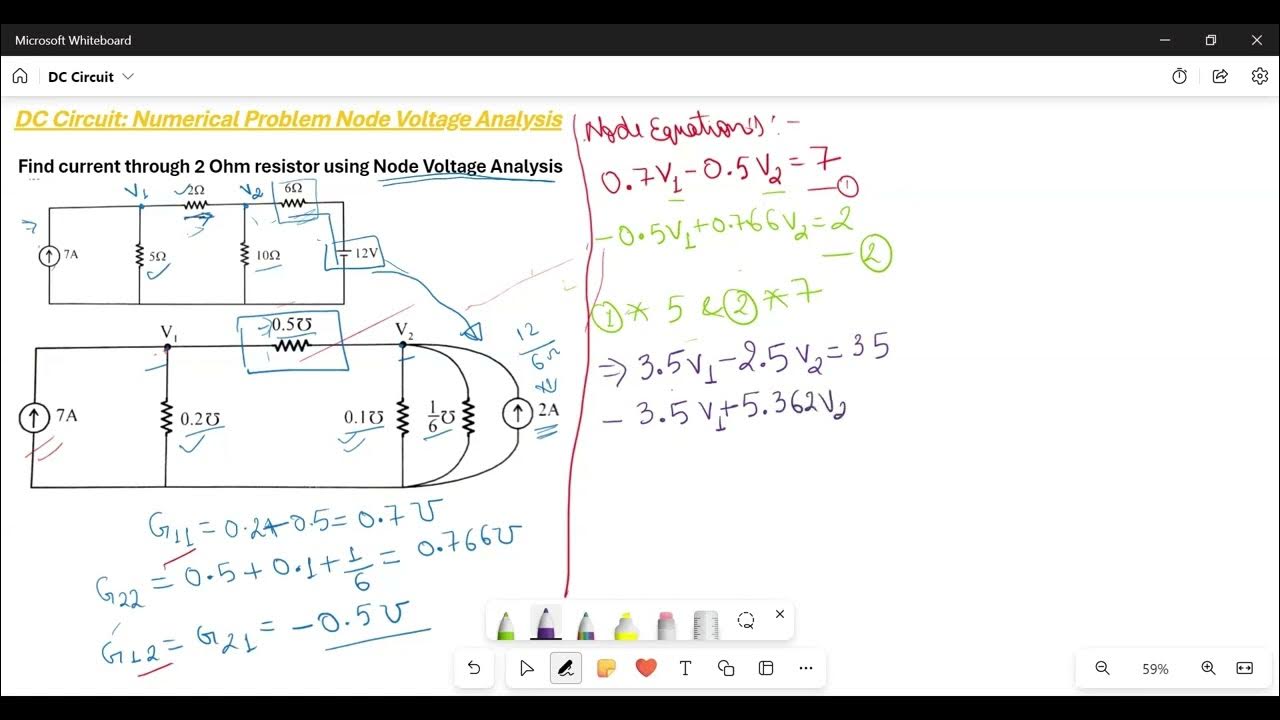 Microsoft Whiteboard
DC Circuit
DC Circuit: Numerical Problem Node Voltage Analysis
Find current through 2 Ohm resistor using Node Voltage Analysis
V1 2Ω V2 6Ω
7A 5Ω 10Ω 12V
V1 0.5℧ V2
7A 0.2℧ 0.1℧ 1/6 ℧ 2A
12/6Ω
G11 = 0.2+0.5 = 0.7 ℧
G22 = 0.5 + 0.1 + 1/6 = 0.766℧
G12 = G21 = -0.5 ℧
Node Equations :-
0.7V1 - 0.5V2 = 7 —①
-0.5V1 + 0.766V2 = 2 —②
① * 5 & ② * 7
⇒ 3.5V1 - 2.5V2 = 35
- 3.5V1 + 5.362V2
59%